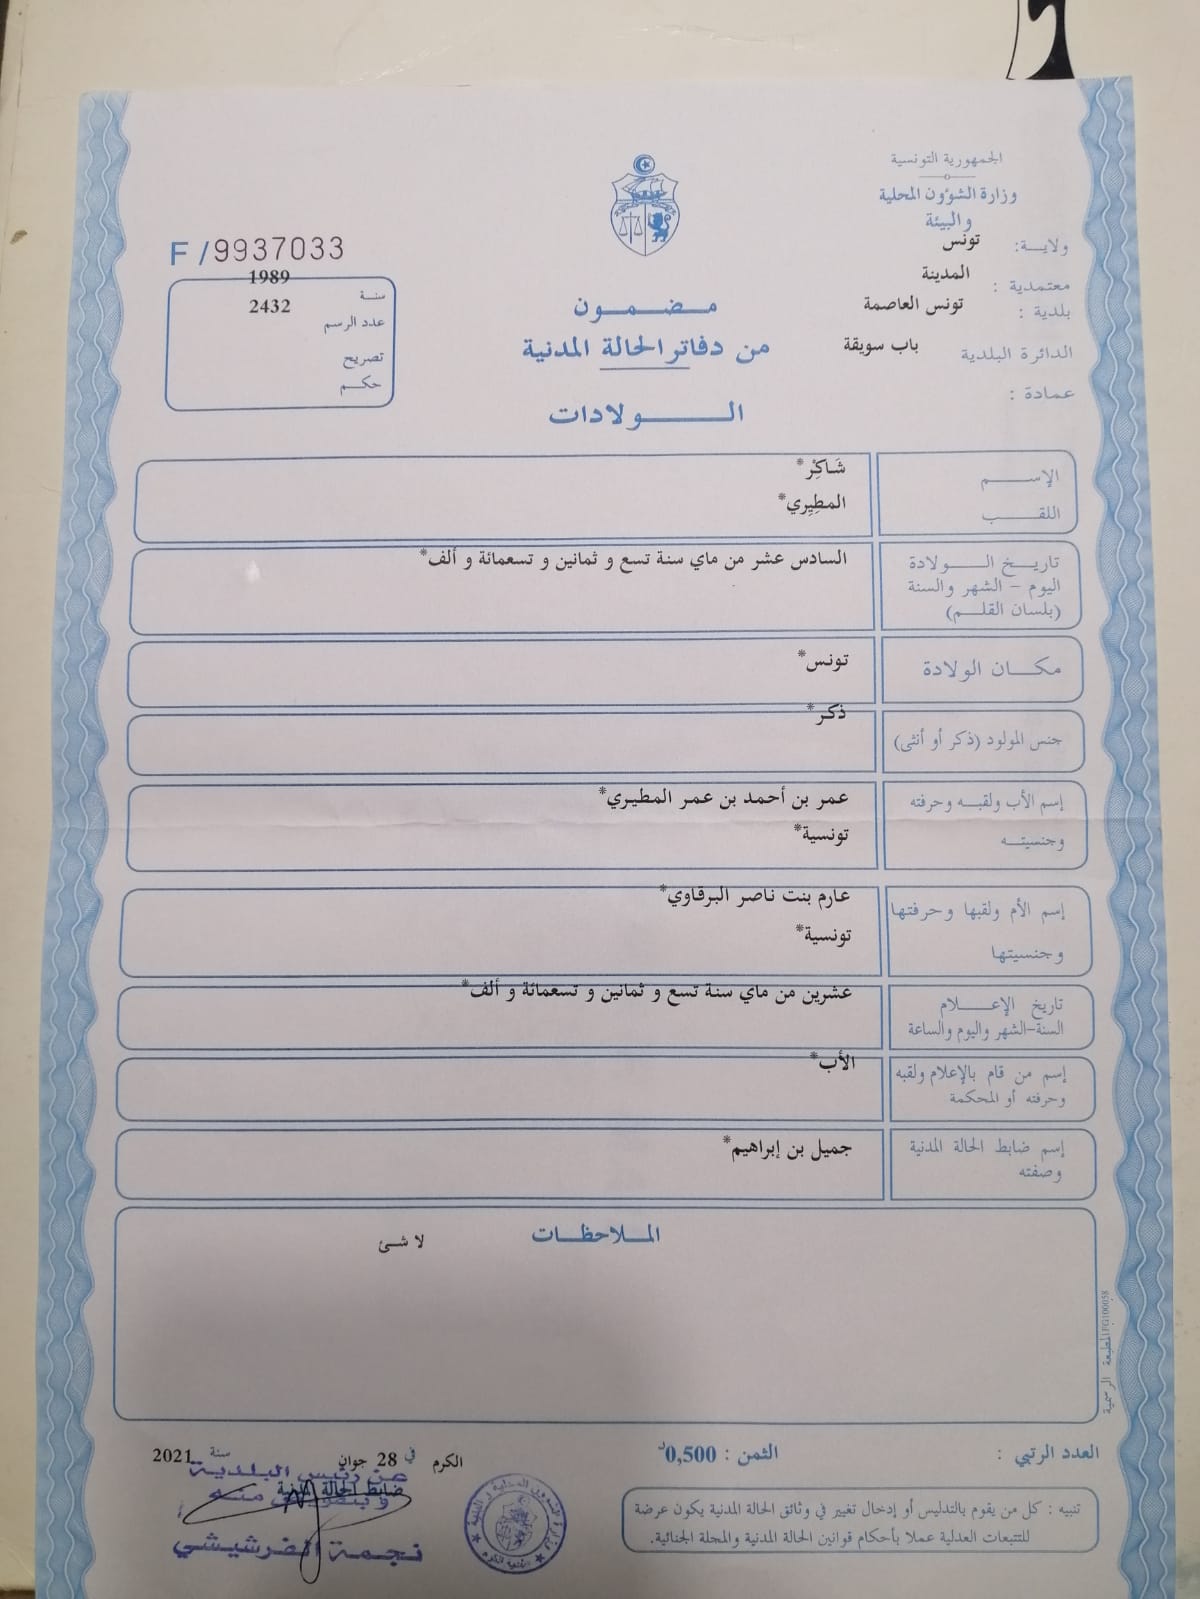 الجمهورية التونسية
وزارة الشؤون المحلية
والبيئة
ولاية: تونس
معتمدية : المدينة
بلدية : تونس العاصمة
الدائرة البلدية باب سويقة
عمادة :
F /9937033
سنة 1989
عدد الرسم 2432
تصريح
حكم
مضمون
من دفاتر الحالة المدنية
الولادات
الإسم شَاكِرْ*
اللقب المطِيِري*
تاريخ الولادة السادس عشر من ماي سنة تسع و ثمانين و تسعمائة و ألف*
اليوم - الشهر والسنة
(بلسان القلم)
مكان الولادة تونس*
جنس المولود (ذكر أو أنثى) ذكر*
إسم الأب ولقبه وحرفته عمر بن أحمد بن عمر المطيري*
وجنسيته تونسية*
إسم الأم ولقبها وحرفتها عارم بنت ناصر البرقاوي*
وجنسيتها تونسية*
تاريخ الإعلام عشرين من ماي سنة تسع و ثمانين و تسعمائة و ألف*
السنة-الشهر واليوم والساعة
إسم من قام بالإعلام ولقبه الأب*
وحرفته أو المحكمة
إسم ضابط الحالة المدنية جميل بن إبراهيم*
وصفته
الملاحظات
لا شئ
المطبعة الرسمية IFG100058
العدد الرتبي : الثمن : 0,500د
الكرم في 28 جوان سنة 2021
ضابط الحالة المدنية
عن رئيس البلدية
وبتفويض منه
نجمة الفرشيشي
تنبيه : كل من يقوم بالتدليس أو إدخال تغيير في وثائق الحالة المدنية يكون عرضة
للتتبعات العدلية عملا بأحكام قوانين الحالة المدنية والمجلة الجنائية.